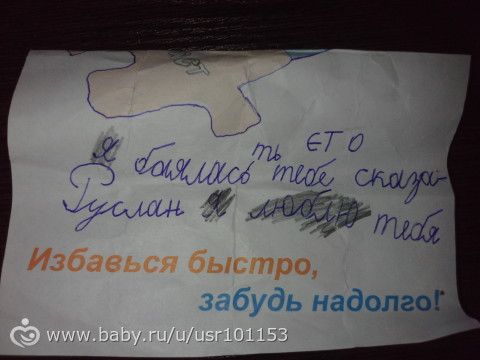 ть ЄТО
Я боялась тебе сказа-
Руслан я люблю тебя
Избавься быстро,
забудь надолго!
www.baby.ru/u/usr101153